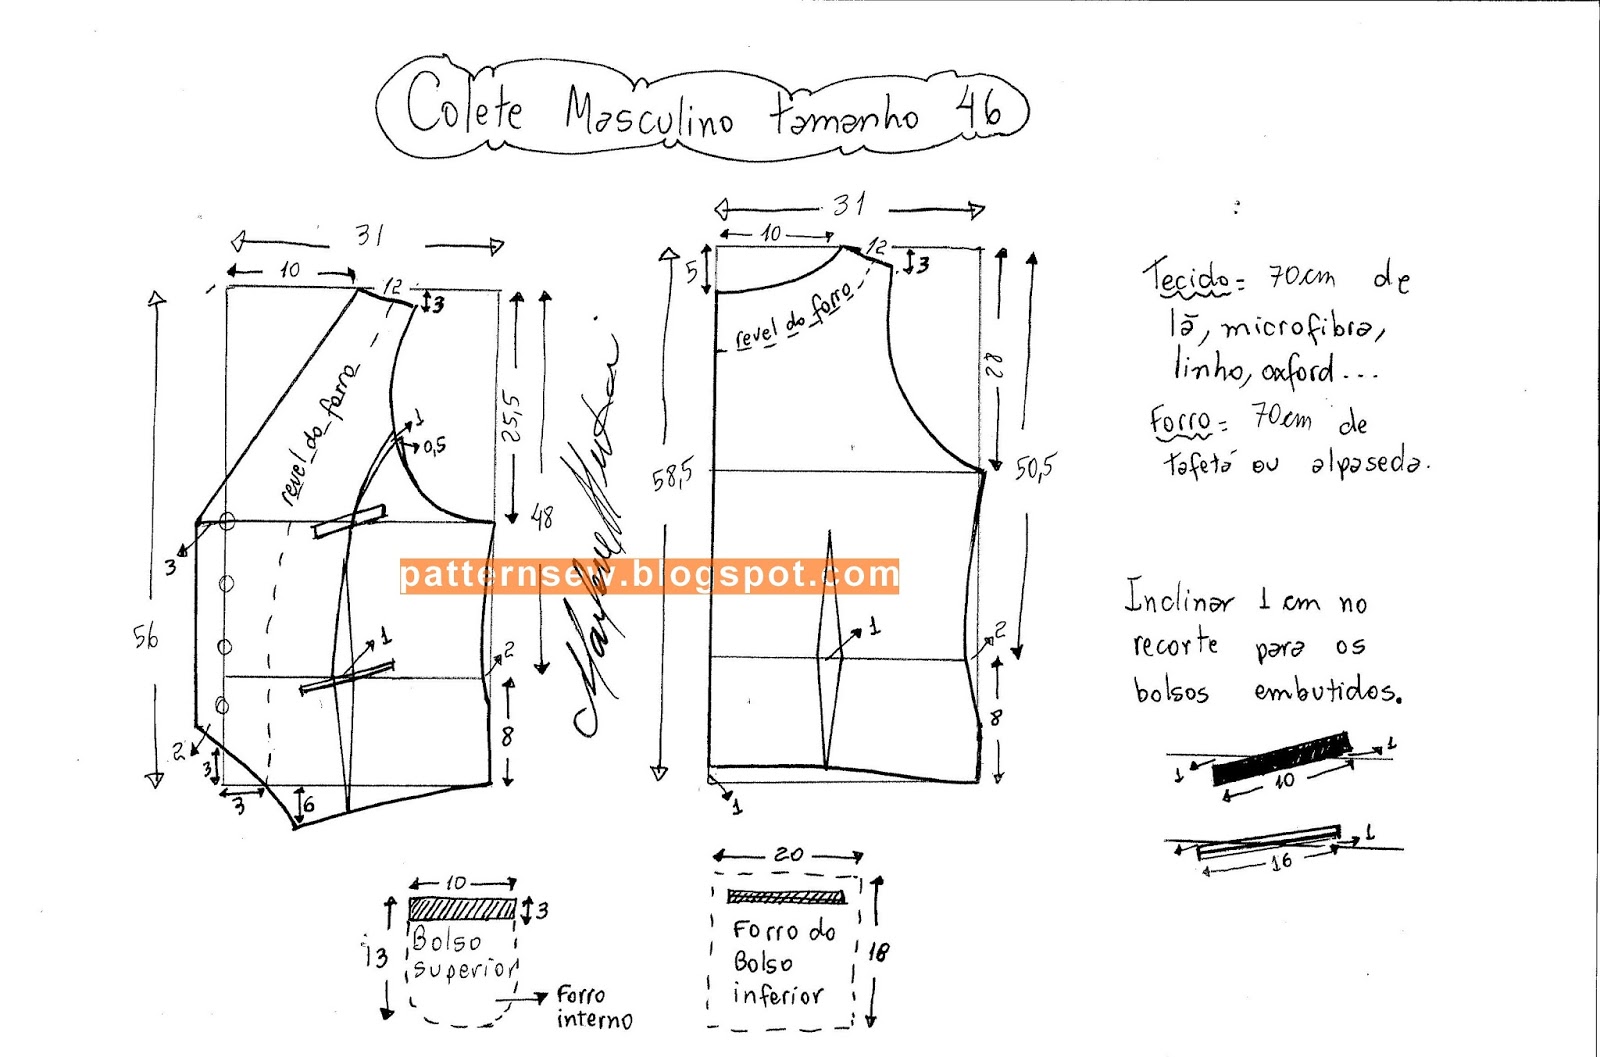 Colete Masculino tamanho 46
31
10
12
3
revel do forro
1
0,5
25,5
48
3
56
1
2
2
3
3
6
8
31
10
12
5
3
revel do forro
28
58,5
50,5
1
2
8
1
patternsew.blogspot.com
Tecido = 70cm de
lã, microfibra,
linho, oxford...
Forro = 70cm de
tafetá ou alpaseda.
Inclinar 1 cm no
recorte para os
bolsos embutidos.
1
1
10
1
16
10
3
13
Bolso
superior
Forro
interno
20
18
Forro do
Bolso
inferior